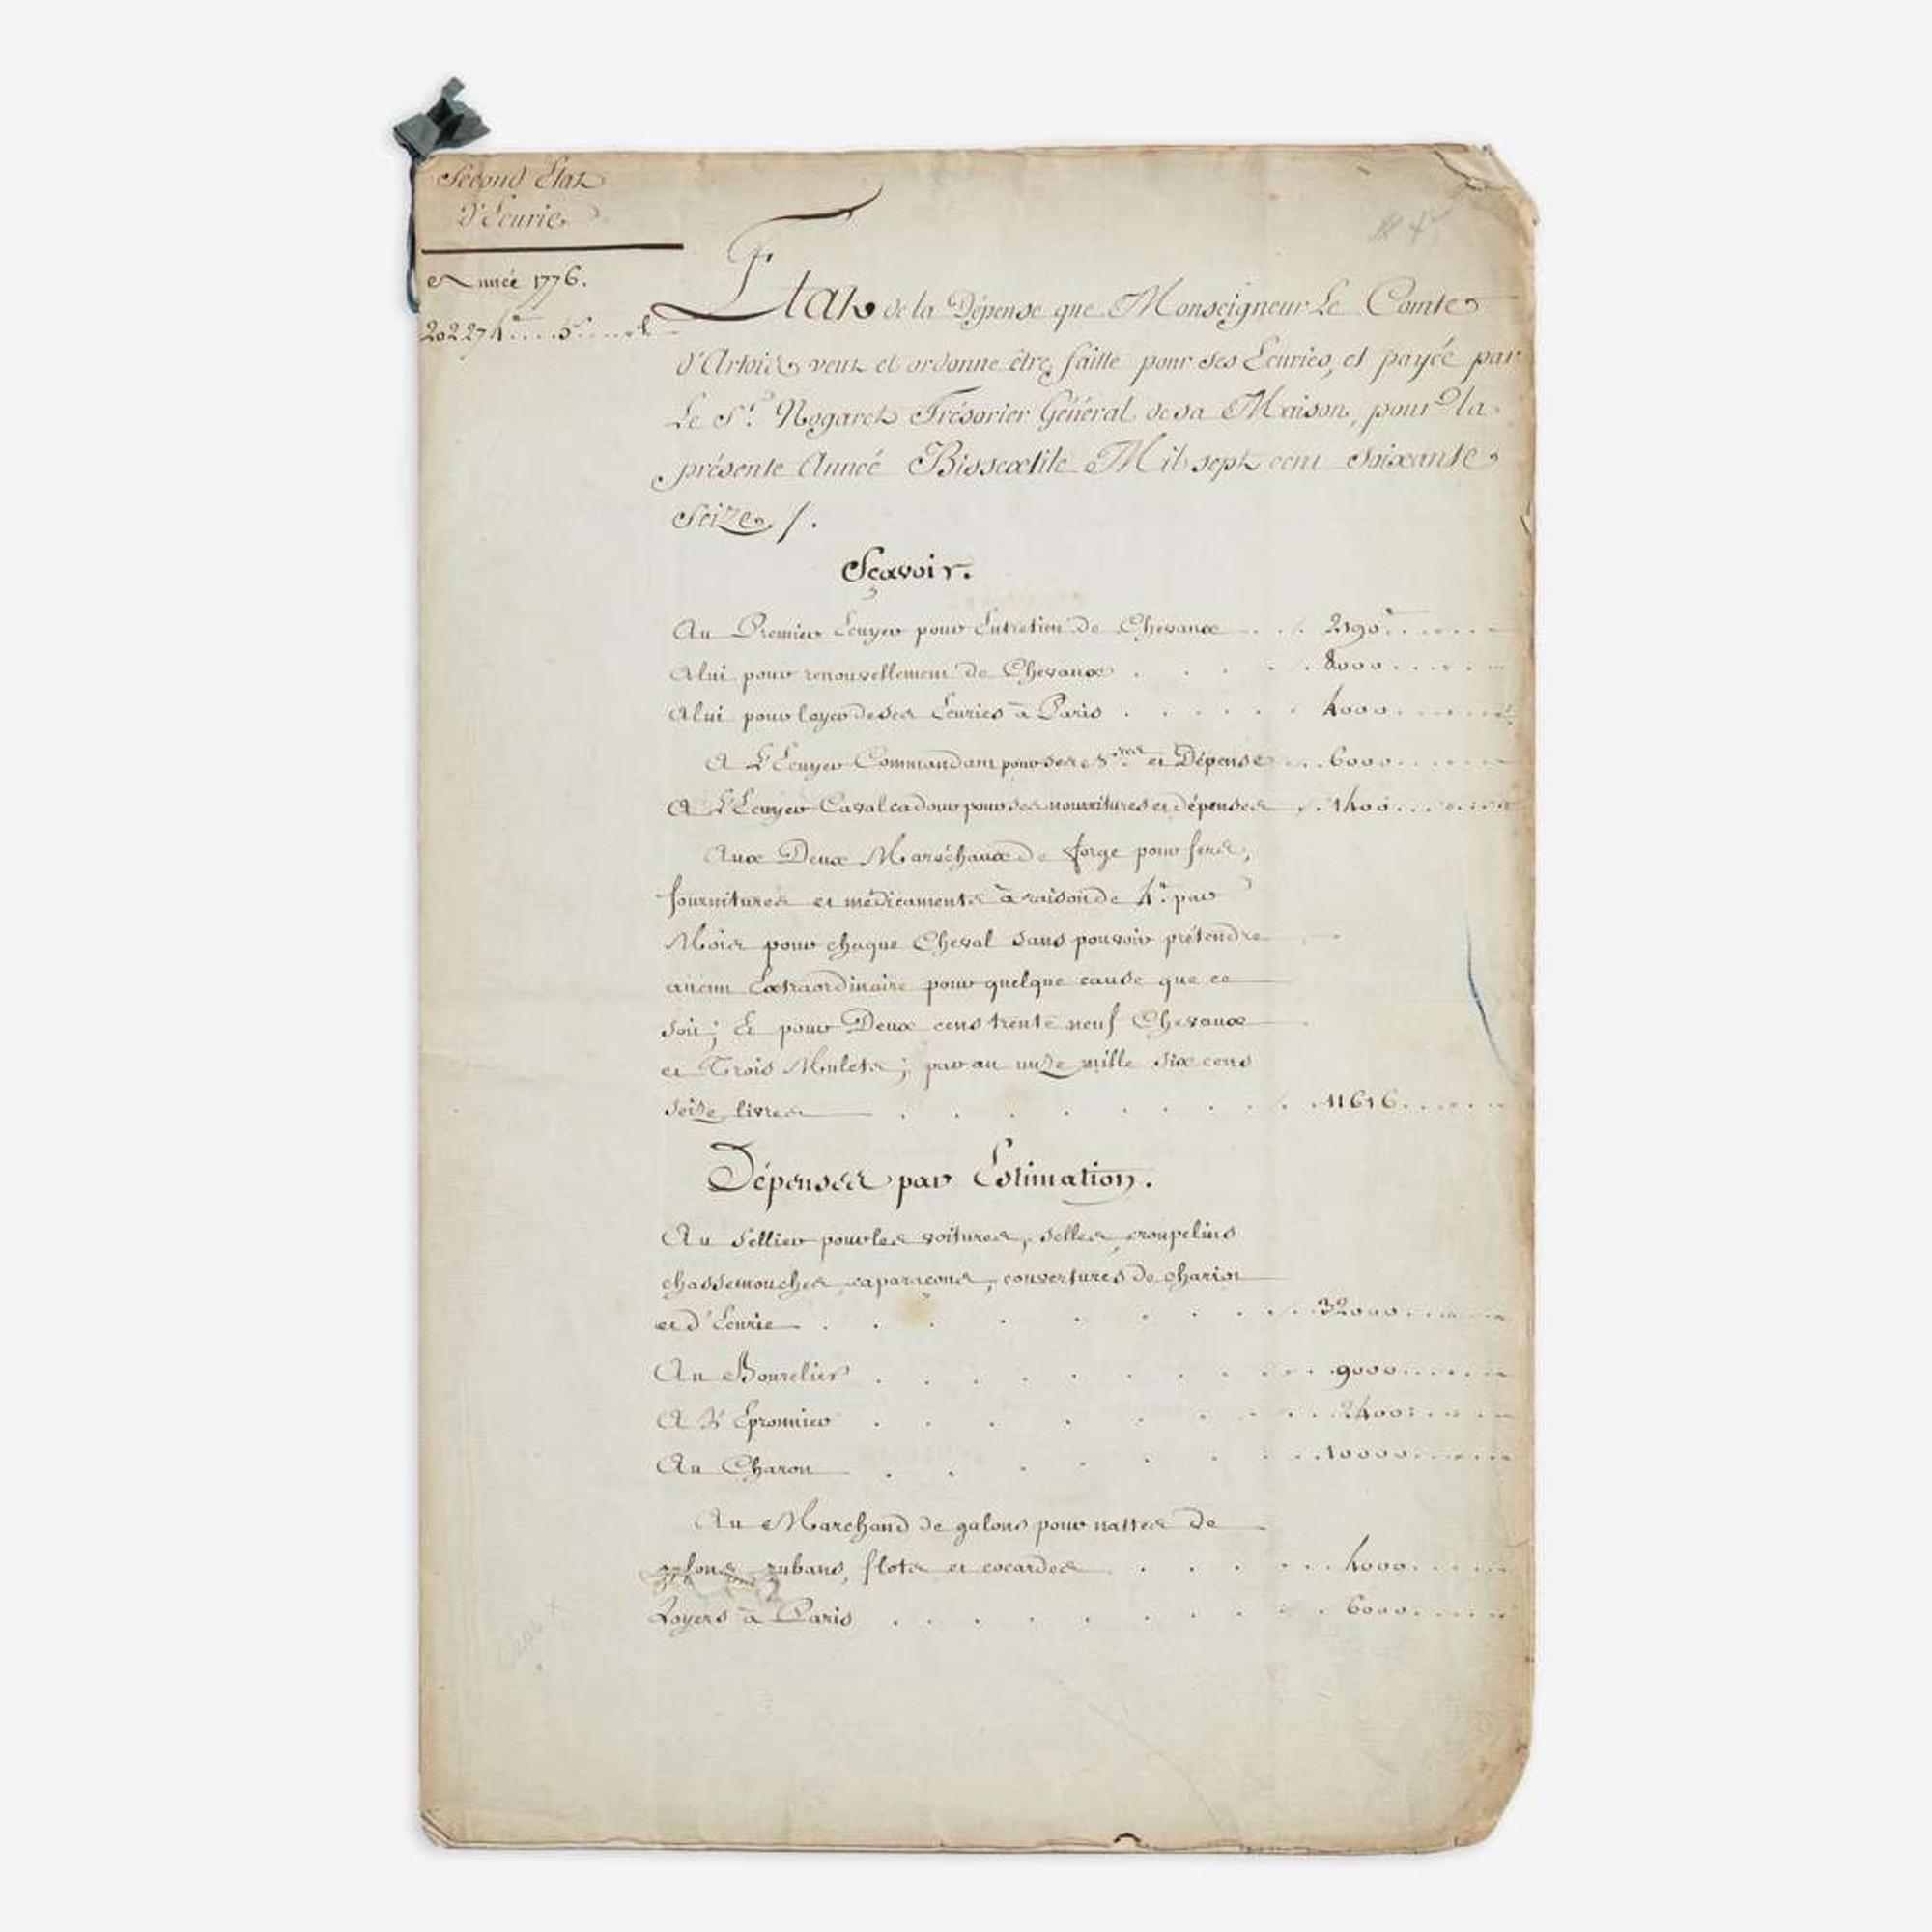 Second Etat
D'Ecurie
Année 1776.
202274ᵗᵗ....5ˢ....d
Etat de la Dépense que Monseigneur Le Comte
d'Artois veut et ordonne être faitte pour ses Ecuries, et payée par
Le Sʳ. Nogaret Trésorier Général de sa Maison, pour la
présente Année Bissextile Mil sept cent soixante
seize /.
Sçavoir.
Au Premier Ecuyer pour Entretien de Chevaux . . . 2190ᵗᵗ
A lui pour renouvellement de Chevaux . . . . 8000
A lui pour loyer de ses Ecuries à Paris . . . . . 4000
A L'Ecuyer Commandant pour ses et Dépense . . 6000
A L'Ecuyer Cavalcadour pour ses nourritures et dépenses . . 1400
Aux Deux Maréchaux de forge pour fers,
fournitures et médicaments à raison de 4ᵗᵗ. par
Mois pour chaque Cheval sans pouvoir prétendre
aucun Extraordinaire pour quelque cause que ce
soit; Et pour Deux cens trente neuf Chevaux
et Trois Mulets; par an unze mille six cens
seize livres . . . . . . . 11616
Dépenses par Estimation.
Au Sellier pour les voitures, selles, croupelins
chassemouches, caparaçons, couvertures de chariot
et d'Ecurie . . . . . . . 32000
Au Bourelier . . . . . . . 9000
A L'Epronnier . . . . . . 2400
Au Charon . . . . . . 10000
Au Marchand de galons pour nattes de
galons rubans, flots et cocardes . . . . 4000
Loyers à Paris . . . . . . . 6000